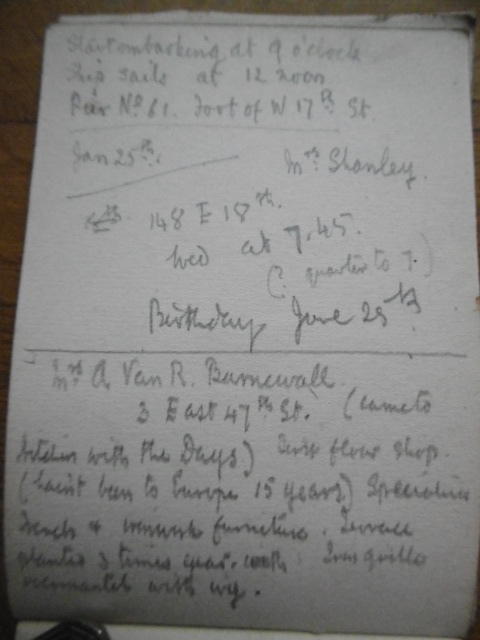 Start embarking at 9 o'clock
Ship sails at 12 noon
Pier No 61. Foot of W 17th St.
Jan 25th.
Mrs Stanley.
148 E 18th.
Wed at 7.45.
(? quarter to 7.)
Birthday June 25th
Mrs A Van R. Barnewall
3 East 47th St. (came to
Hitchin with the Days) flower shop.
(hasn't been to Europe 15 years) Specialises
French & furniture. Terrace
planted 3 times year. with
with ivy.